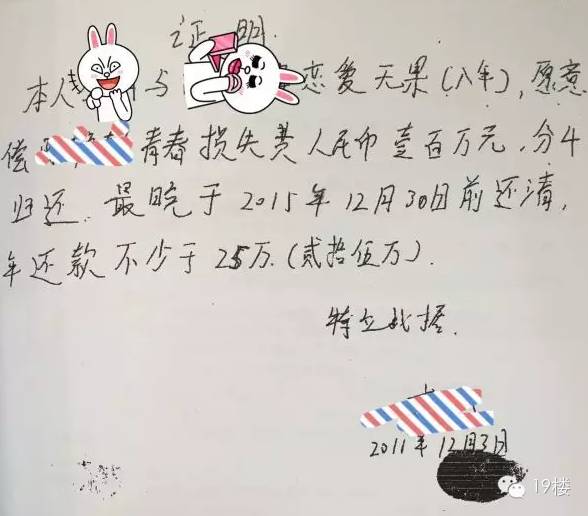 证明
本人 与 恋爱无果(八年),愿意
偿 青春损失费人民币壹百万元,分4
归还.最晚于2015年12月30日前还清,
年还款不少于25万.(贰拾伍万).
特立此据.
2011年12月3日
19楼